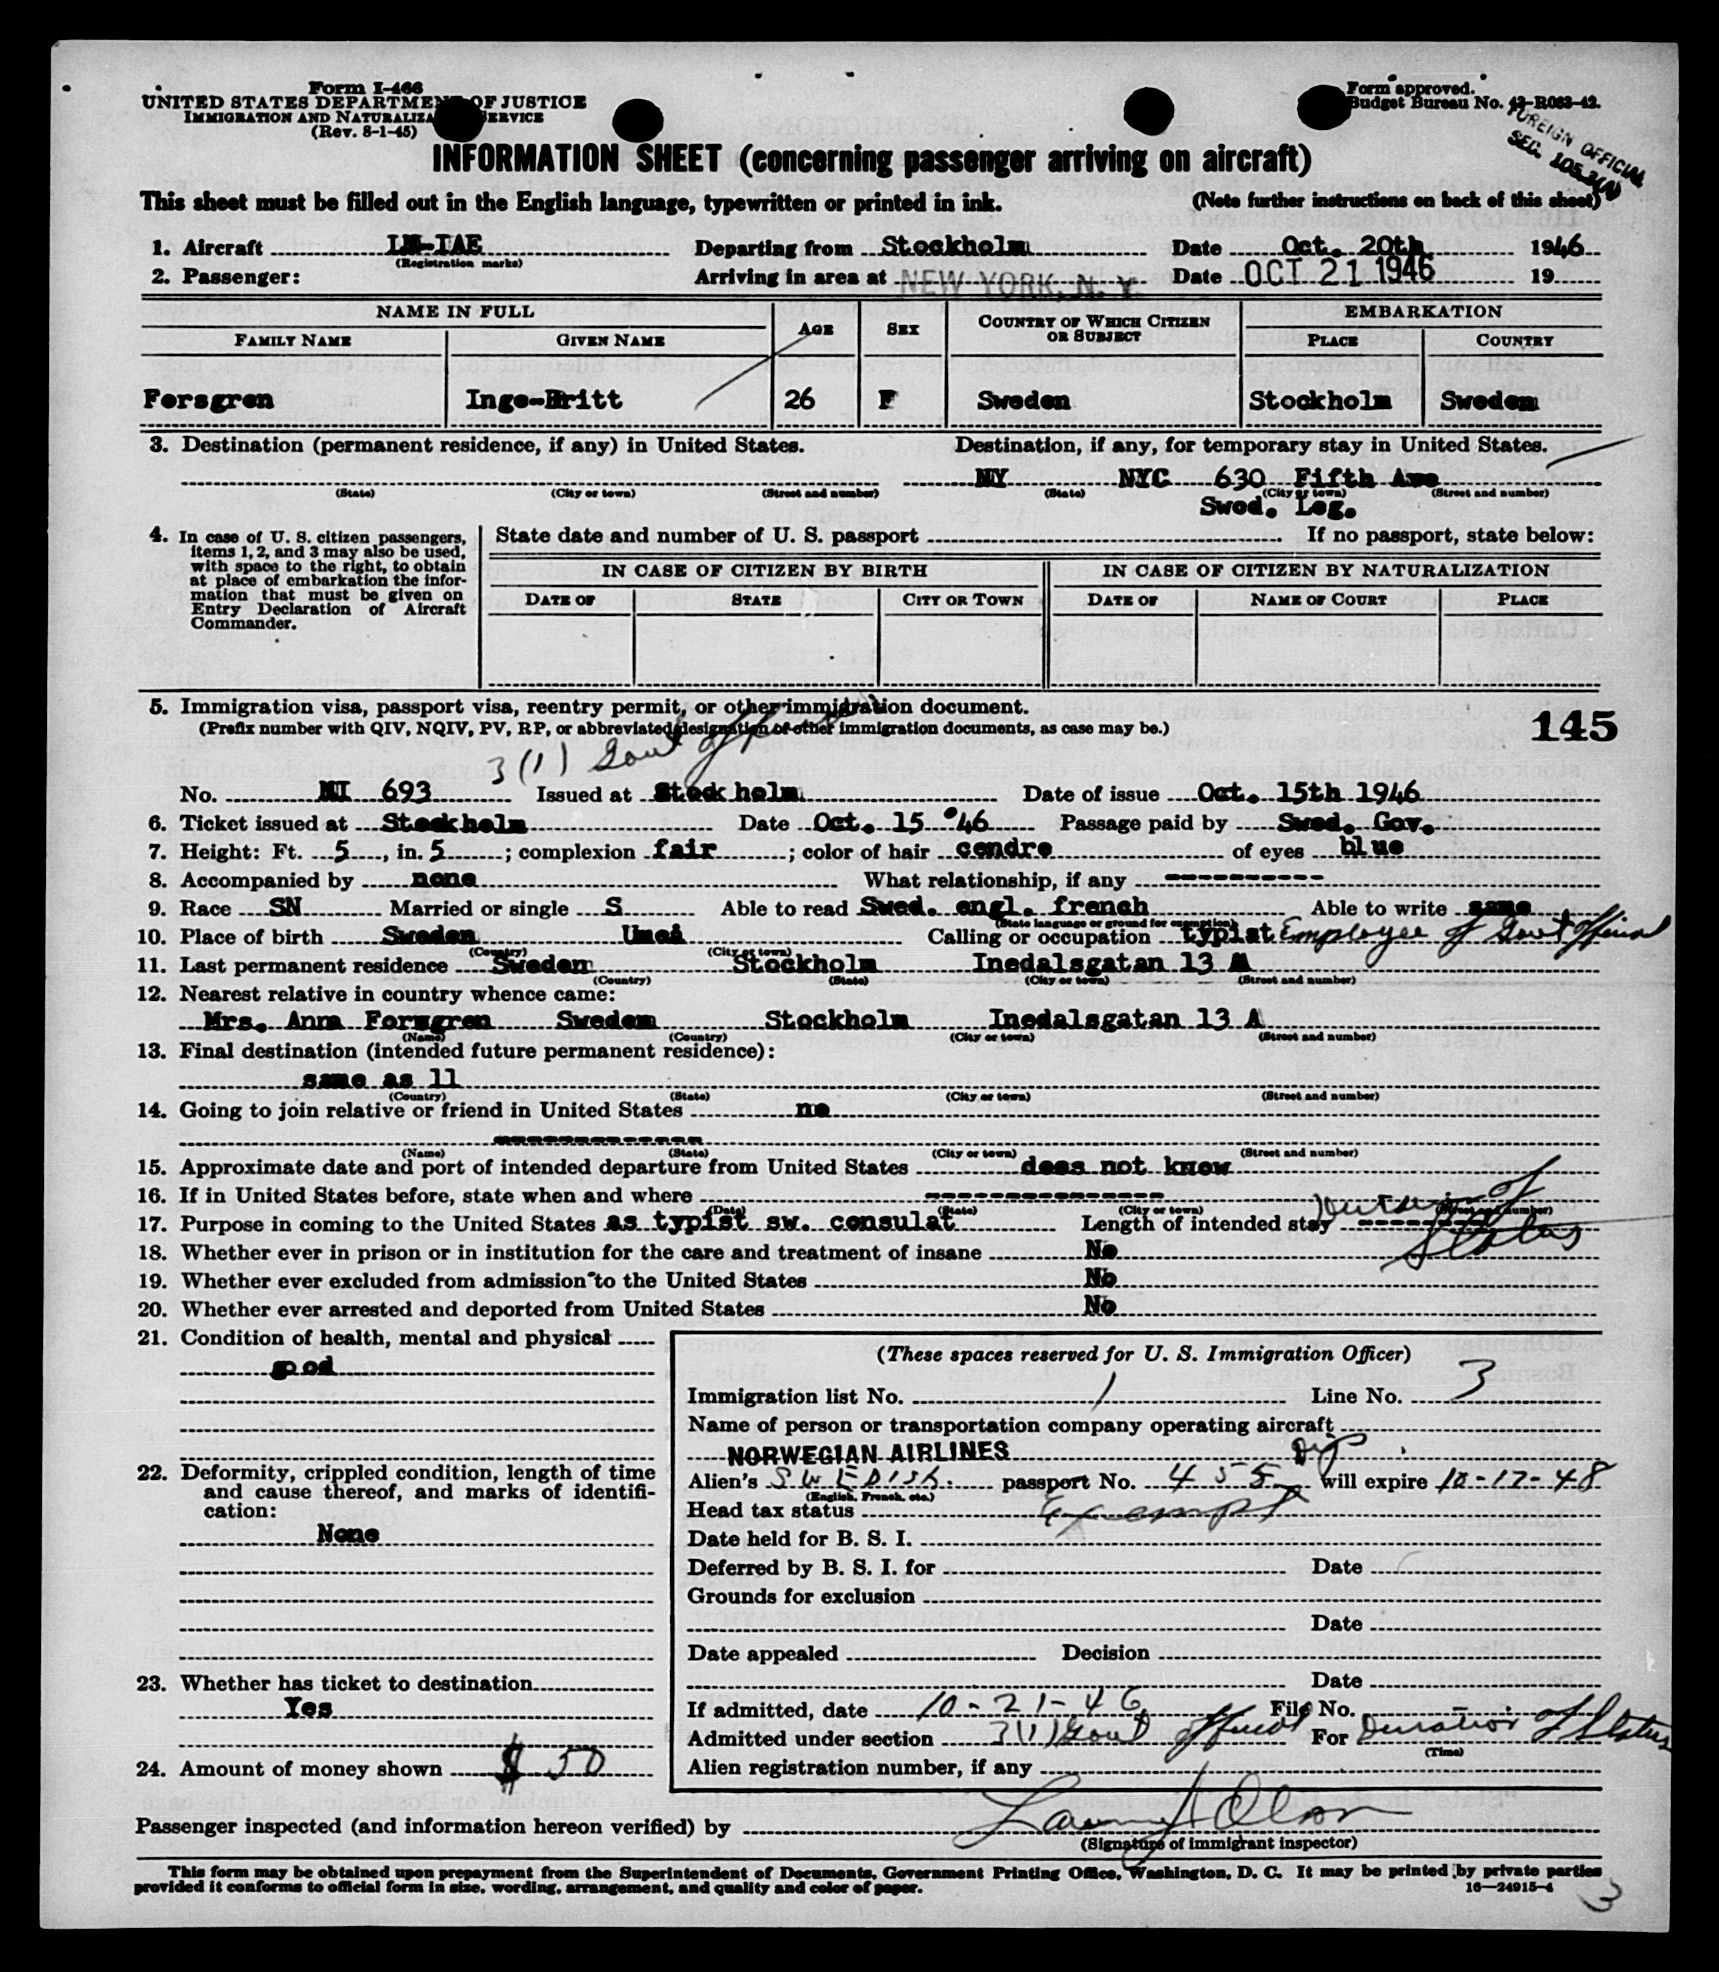 Form I-466
UNITED STATES DEPARTMENT OF JUSTICE
IMMIGRATION AND NATURALIZATION SERVICE
(Rev. 8-1-45)
Form approved.
Budget Bureau No. 43-R083-42.
FOREIGN OFFICIAL
SEC. 105.3(A)
INFORMATION SHEET (concerning passenger arriving on aircraft)
This sheet must be filled out in the English language, typewritten or printed in ink. (Note further instructions on back of this sheet)
1. Aircraft LN-IAE Departing from Stockholm Date Oct. 20th 1946
(Registration marks)
2. Passenger: Arriving in area at NEW YORK, N. Y. Date OCT 21 1946 19
NAME IN FULL AGE SEX COUNTRY OF WHICH CITIZEN OR SUBJECT EMBARKATION
FAMILY NAME GIVEN NAME PLACE COUNTRY
Forsgren Inge-Britt 26 F Sweden Stockholm Sweden
3. Destination (permanent residence, if any) in United States. Destination, if any, for temporary stay in United States.
NY NYC 630 Fifth Ave
(State) (City or town) (Street and number) (State) (City or town) (Street and number)
Swed. Leg.
4. In case of U. S. citizen passengers, items 1, 2, and 3 may also be used, with space to the right, to obtain at place of embarkation the information that must be given on Entry Declaration of Aircraft Commander.
State date and number of U. S. passport If no passport, state below:
IN CASE OF CITIZEN BY BIRTH IN CASE OF CITIZEN BY NATURALIZATION
DATE OF STATE CITY OR TOWN DATE OF NAME OF COURT PLACE
5. Immigration visa, passport visa, reentry permit, or other immigration document.
(Prefix number with QIV, NQIV, PV, RP, or abbreviated designation of other immigration documents, as case may be.)
145
3(1) Gov't official
No. NI 693 Issued at Stockholm Date of issue Oct. 15th 1946
6. Ticket issued at Stockholm Date Oct. 15 '46 Passage paid by Swed. Gov.
7. Height: Ft. 5, in. 5; complexion fair; color of hair cendre of eyes blue
8. Accompanied by none What relationship, if any ----------
9. Race SN Married or single S Able to read Swed. engl. french Able to write same
(State language or ground for exemption)
10. Place of birth Sweden Umeå Calling or occupation typist Employee of Gov't official
(Country) (City or town)
11. Last permanent residence Sweden Stockholm Inedalsgatan 13 A
(Country) (State) (City or town) (Street and number)
12. Nearest relative in country whence came:
Mrs. Anna Forsgren Sweden Stockholm Inedalsgatan 13 A
(Name) (Country) (City or town) (Street and number)
13. Final destination (intended future permanent residence):
same as 11
(Country) (State) (City or town) (Street and number)
14. Going to join relative or friend in United States no
-------------
(Name) (State) (City or town) (Street and number)
15. Approximate date and port of intended departure from United States does not know
16. If in United States before, state when and where ---------------
(Date) (State) (City or town) (Street and number)
17. Purpose in coming to the United States as typist sw. consulat Length of intended stay -------- Duration of Status
18. Whether ever in prison or in institution for the care and treatment of insane No
19. Whether ever excluded from admission to the United States No
20. Whether ever arrested and deported from United States No
21. Condition of health, mental and physical
good
22. Deformity, crippled condition, length of time and cause thereof, and marks of identification:
None
23. Whether has ticket to destination
Yes
24. Amount of money shown $ 50
(These spaces reserved for U. S. Immigration Officer)
Immigration list No. 1 Line No. 3
Name of person or transportation company operating aircraft
NORWEGIAN AIRLINES
Dip
Alien's SWEDISH passport No. 455 will expire 10-17-48
(English, French, etc.)
Head tax status Exempt
Date held for B. S. I.
Deferred by B. S. I. for Date
Grounds for exclusion
Date
Date appealed Decision
Date
If admitted, date 10-21-46 File No. -
Admitted under section 3(1) Gov't official For Duration of Status
(Time)
Alien registration number, if any
Passenger inspected (and information hereon verified) by
(Signature of immigrant inspector)
This form may be obtained upon prepayment from the Superintendent of Documents, Government Printing Office, Washington, D. C. It may be printed by private parties
provided it conforms to official form in size, wording, arrangement, and quality and color of paper.
16—24915-4
3